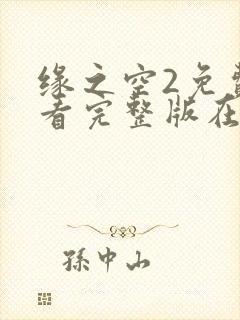 缘之空2免费
看完整版在
孫中山